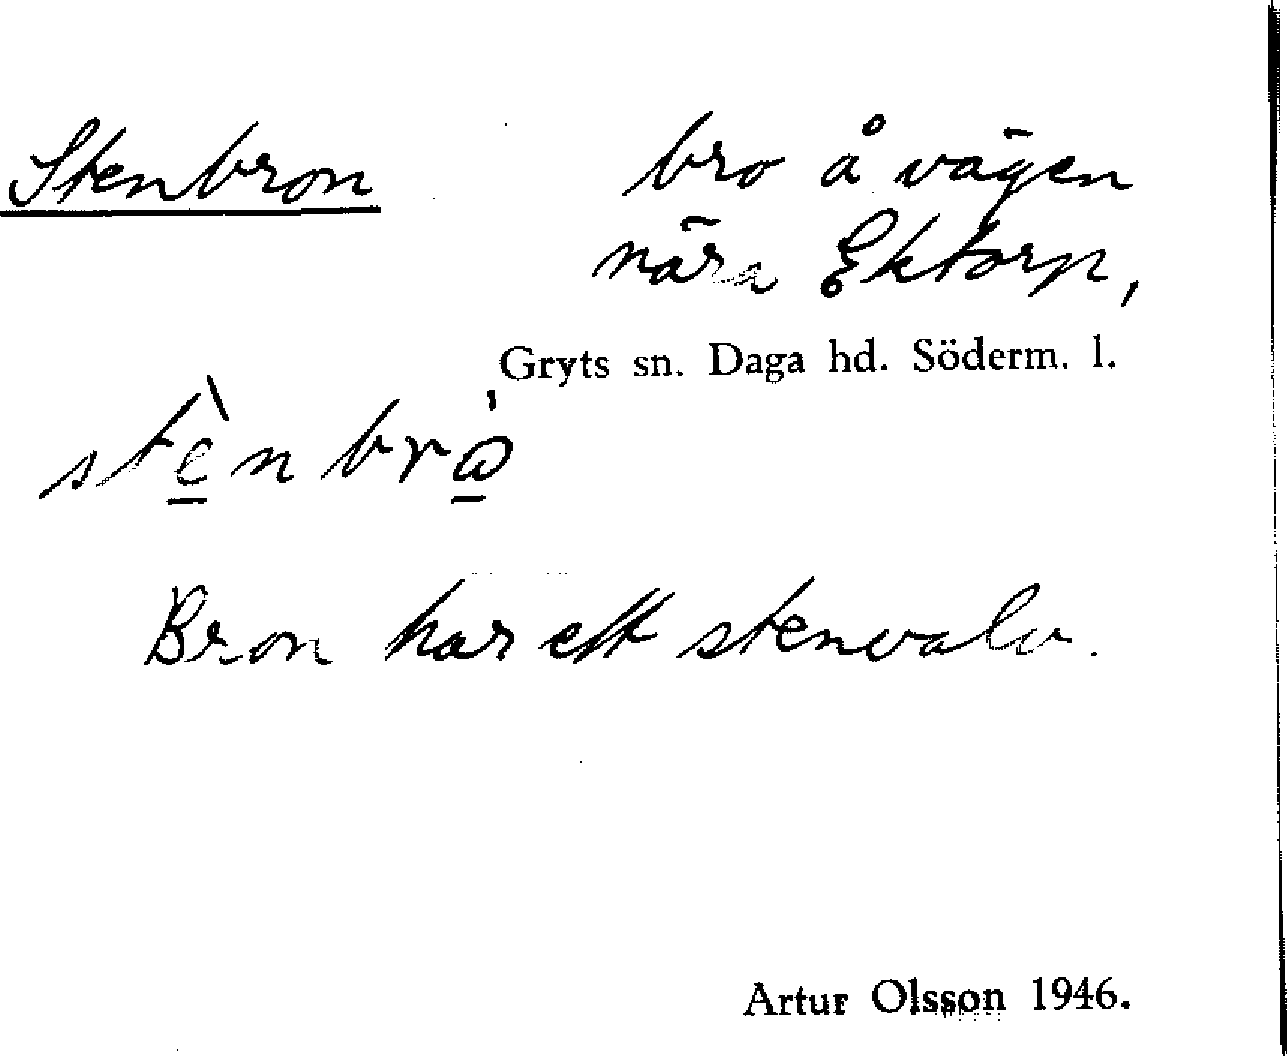 Stenbron bro å vägen
nära Ektorp,
Gryts sn. Daga hd. Söderm. l.
stè̠nbrώ̠
Bron har ett stenvalv.
Artur Olsson 1946.